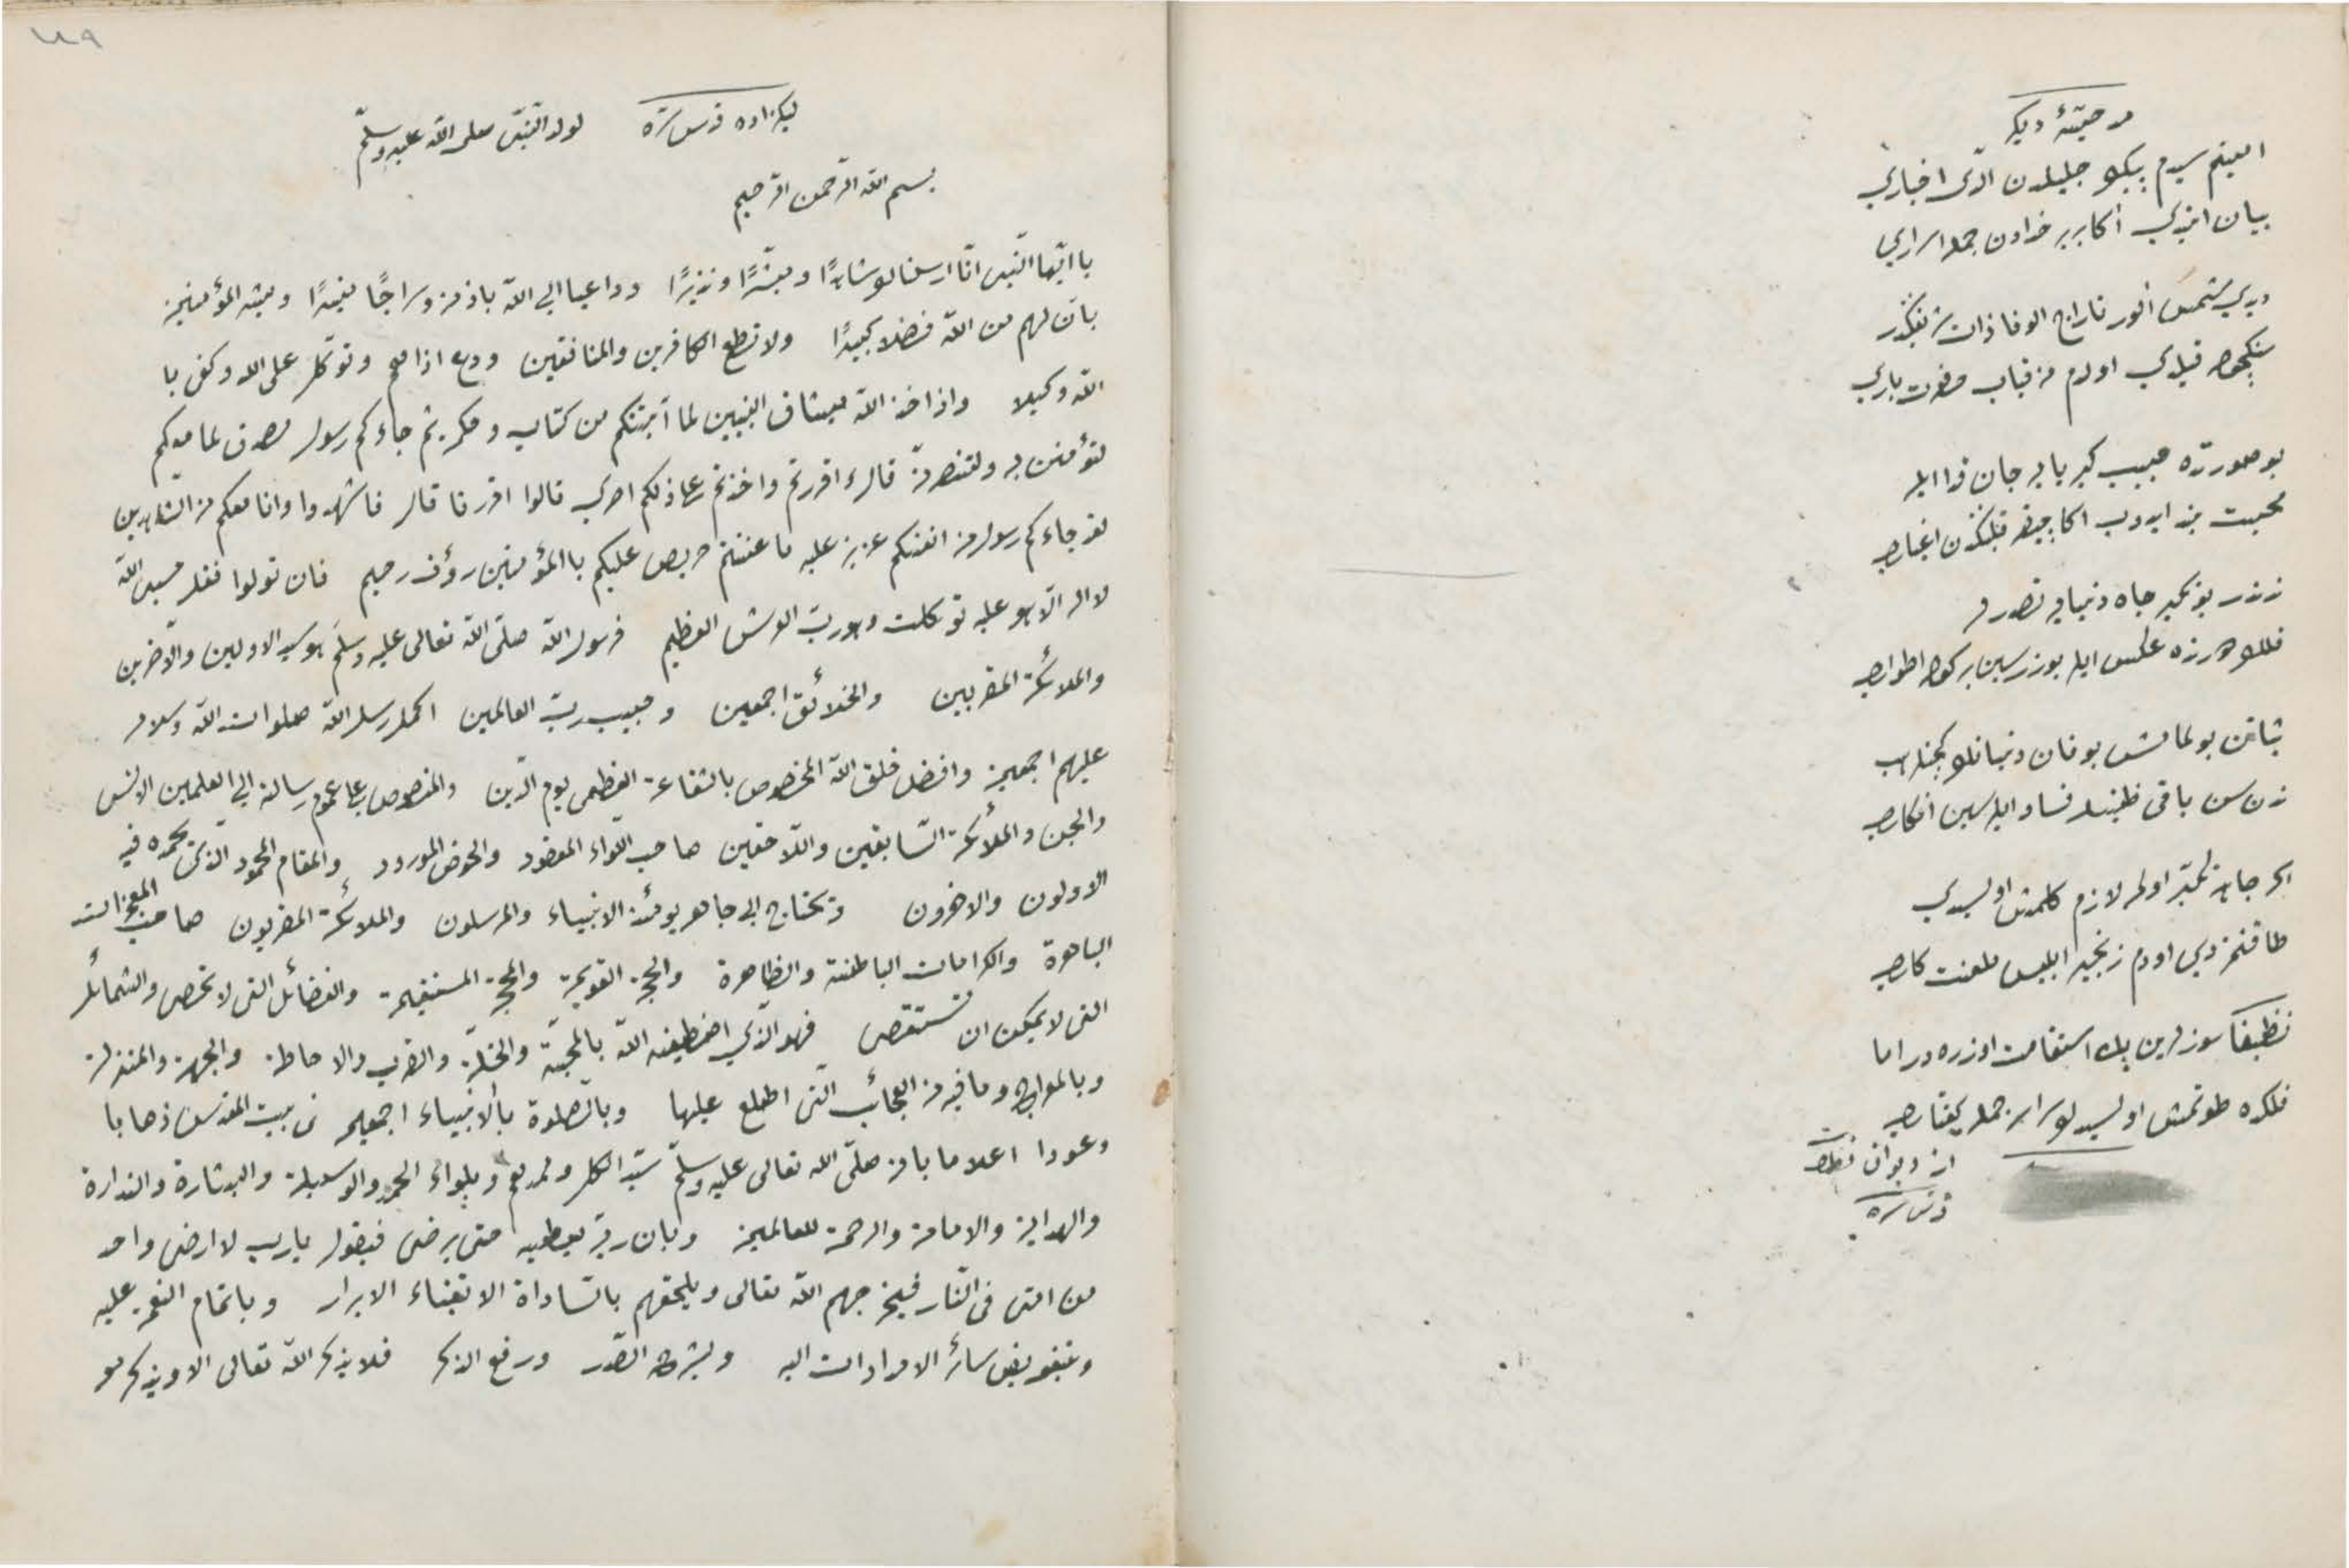 مدحیّهٔ دیگر
امینم سیدم پیکو جلیلدن الدی اخباری
بیان ایتدی اکا بر بر خدادن جمله اسراری
دیدی شمس انور ذات
قیلدی اولدم حضرت باری
بو صورتده حبیب کبریایه جان فدا ایله
محبت ایدوب اکا اغیاری
ندندر بو تکبر جاه دنیایه
فللو هرزه عکس ایله اطواری
ثباتن بولمامش بو فان دنیا
ندن سن باقی فساد ایلرسین افکاری
تکبر اولر لازم کلمش اولسیدی
طاقنمزدی اودم زنجیر ابلیس ملعنت کاری
نظیفا سوزلرین پك استقامت اوزره در اما
فلکده طوتمش اولسیدك جمله كفتاری
از دیوان نظیف
قدس سره
٧٨٩
لیکزاده قدس سره لولد النّبی صلی الله علیه وسلّم
بسم الله الرّحمن الرّحیم
یا ایّها النّبی انّا ارسلناك شاهدًا ومبشّرًا ونذیرًا وداعیا الی الله باذنه وسراجًا منیرًا وبشر المؤمنین
بانّ لهم من الله فضلا كبیرًا ولا تطع الكافرین والمنافقین ودع اذاهم وتوكل علی الله وكفی با
الله وكیلا واذ اخذ الله میثاق النبیین لما آتیتكم من كتاب وحكمة ثم جاءكم رسول مصدق لما معكم
لتؤمنن به ولتنصرنّه قال ءاقررتم واخذتم علی ذلكم اصری قالوا اقررنا قال فاشهدوا وانا معكم من الشّاهدین
لقد جاءكم رسول من انفسكم عزیز علیه ما عنتم حریص علیكم باالمؤمنین رؤف رحیم فان تولوا فقل حسبی الله
لا اله الّا هو علیه توكلت وهو ربّ العرش العظیم فرسول الله صلّی الله تعالی علیه وسلّم هو سید الاولین والآخرین
والملائكة المقربین والخلائق اجمعین وحبیب ربّ العالمین اكمل رسل الله صلوات الله وسلامه
علیهم اجمعین وافضل خلق الله المخصوص بالشفاعة العظمی یوم الدّین والمنصوص علی عموم رسالته الی العلمین الانس
والجن والملائكة السّابقین واللّاحقین صاحب اللّواء المعقود والحوض المورود والمقام المحمود الّذی یحمده فیه
الاولون والاخرون وتحتاج الی جاهه یومئذ الانبیاء والمرسلون والملائكة المقربون صاحب المعجزات
الباهرة والكرامات الباطنة والظاهرة والحجج القویمة والمحجّة المستقیمة والفضائل التی لا تحصی والشمائل
التی لا یمكن ان تستقصی فهو الّذی اصطفیه الله بالمحبّة والخلّة والقرب والاحاطة والجهة والمنزلة
وبالمعراج وما فیه من العجائب الّتی اطلع علیها وبالصّلوة بالانبیاء اجمعین فی بیت المقدس ذهابا
وعودا اعلاما بانه صلّی الله تعالی علیه وسلّم سیّد الكل وممدهم وبلواء الحمد والوسیلة والبشارة والنذارة
والهدایة والامامة والرحمة للعالمین وبان ربّه یعطیه حتی یرضی فیقول یارب لا ارضی واحد
من امتی فی النّار فیخرجهم الله تعالی ویلحقهم بالسّاداة الاتقیاء الابرار وباتمام النعمة علیه
وتفویض سائر الامدادات الیه وبشرح الصّدر ورفع الذكر فلا یذكر الله تعالی الا ویذكر هو